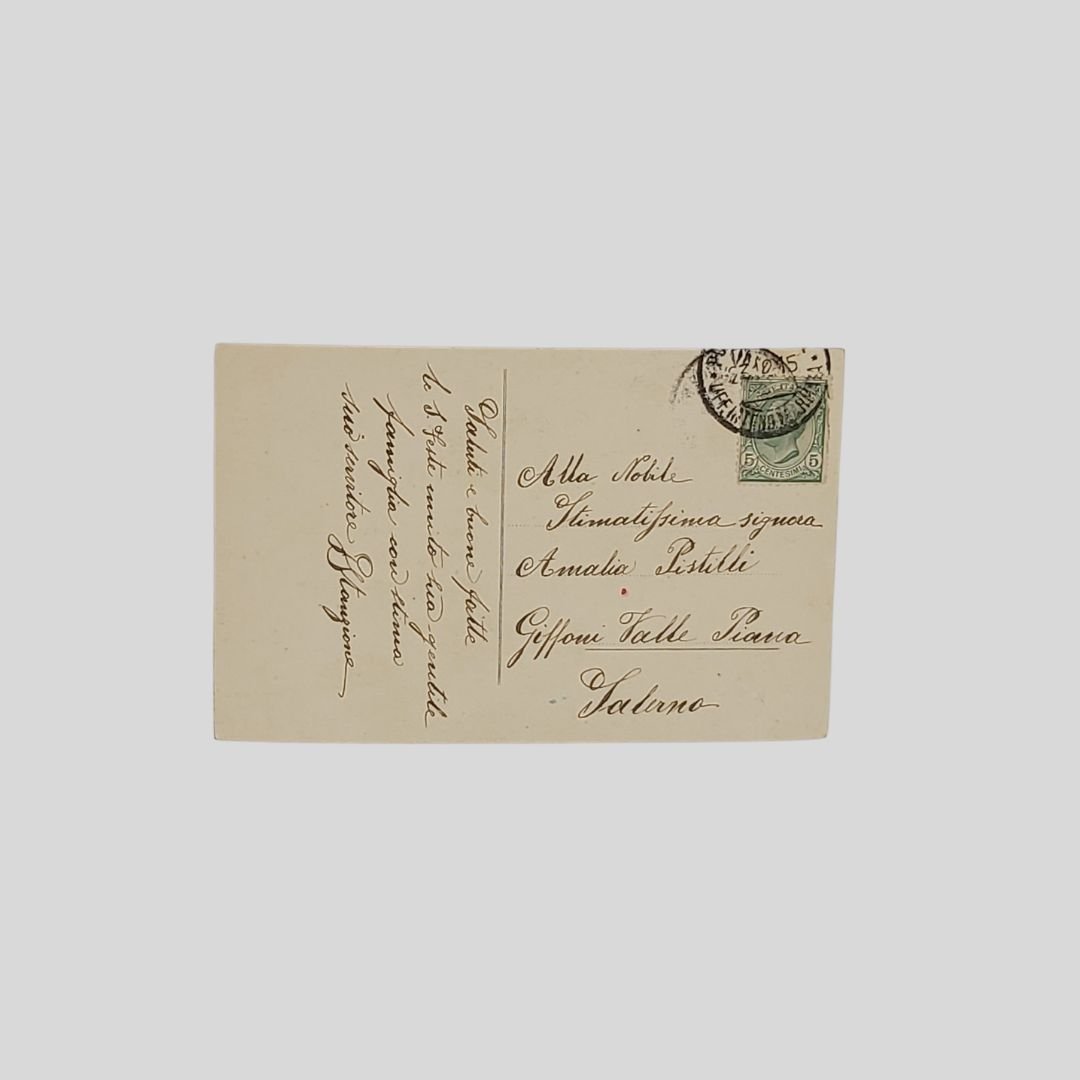 Saluti e buone fatte
le S. Feste unito sua gentile
famiglia con stima
suo servitore Stanzione
Alla Nobile
Stimatissima signora
Amalia Pistilli
Giffoni Valle Piana
Salerno
15
5 CENTESIMI 5